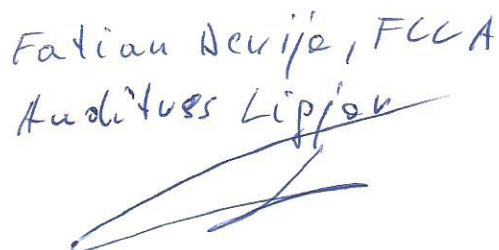 Fatian Dervija, FCCA
Auditues Ligjor